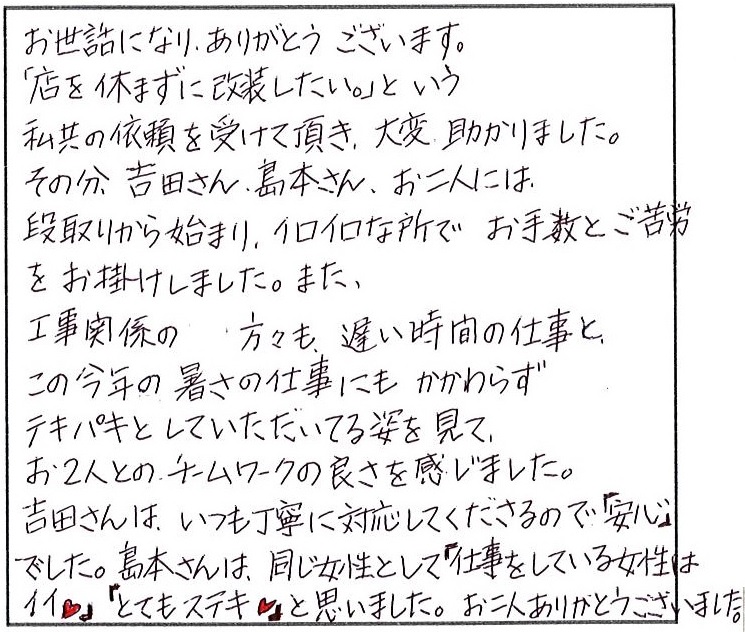 お世話になり、ありがとう ございます。
「店を休まずに改装したい。」と いう
私共の依頼を受けて頂き、大変 助かりました。
その分、吉田さん、島本さん、お二人には、
段取りから始まり、イロイロな所で お手数とご苦労
を お掛けしました。また、
工事関係の 方々も、遅い時間の仕事と、
この今年の暑さの仕事にも かかわらず
テキパキとしていただいてる姿を見て、
お2人との チームワークの良さを感じました。
吉田さんは、いつも丁寧に対応してくださるので『安心』
でした。島本さんは、同じ女性として『仕事をしている女性は
イイ♥』『とてもステキ♥』と思いました。お二人ありがとうございました。